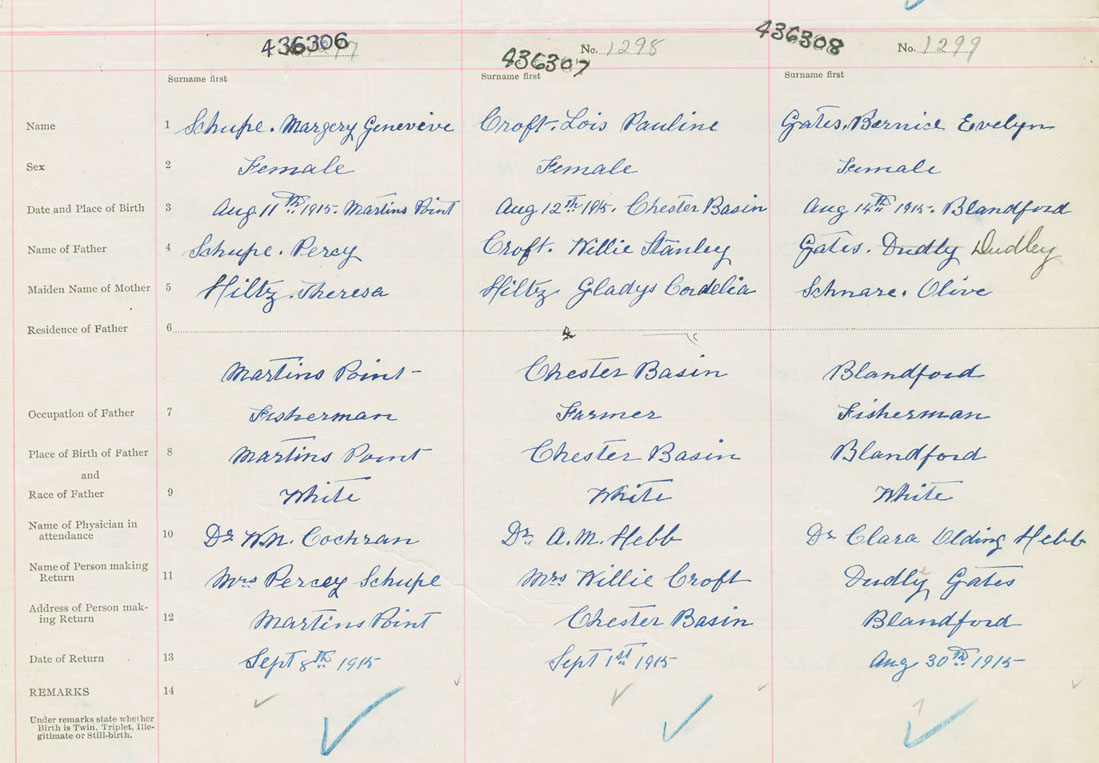 436306
436307 No. 1298
436308 No. 1299
Surname first Surname first Surname first
Name 1 Schupe. Margery Genevive Croft. Lois Pauline Gates. Bernice Evelyn
Sex 2 Female Female Female
Date and Place of Birth 3 Aug 11th 1915. Martins Point Aug 12th 1915. Chester Basin Aug 14th 1915. Blandford
Name of Father 4 Schupe. Percy Croft. Willie Stanley Gates. Dudly Dudley
Maiden Name of Mother 5 Hiltz. Theresa Hiltz. Gladys Cordelia Schnare. Olive
Residence of Father 6
Martins Point Chester Basin Blandford
Occupation of Father 7 Fisherman Farmer Fisherman
Place of Birth of Father 8 Martins Point Chester Basin Blandford
and
Race of Father 9 White White White
Name of Physician in
attendance 10 Dr W.N. Cochran Dr. A.M. Hebb Dr Clara Olding Hebb
Name of Person making
Return 11 Mrs Percey Schupe Mrs Willie Croft Dudly Gates
Address of Person mak-
ing Return 12 Martins Point Chester Basin Blandford
Date of Return 13 Sept 8th 1915 Sept 1st 1915 Aug 30th 1915
REMARKS 14
Under remarks state whether
Birth is Twin. Triplet, Ille-
gitimate or Still-birth.